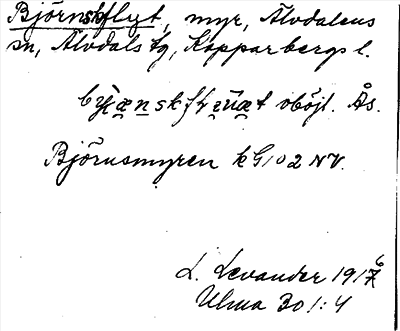 Björnskflyt, myr, Älvdalens
sn, Älvdals tg, Kopparbergs l.
oböjt. Ås.
Björnsmyren kG102 NV.
L. Levander 1916
Ulma 301:4